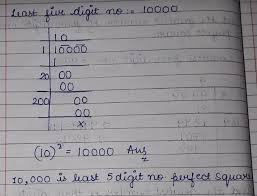 Least five digit no :- 10000
10
1 10000
1
20 00
00
200 00
00
x
(10)² = 10000 Ans
10,000 is least 5 digit no perfect square